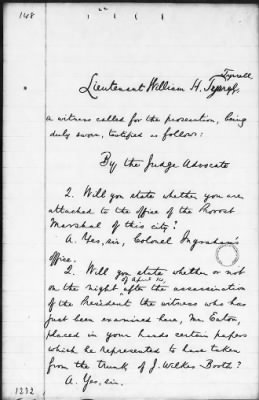 148
Tyrrell
Lieutenant William H.
a witness called for the prosecution, being
duly sworn, testified as follows:
By the Judge Advocate
Q. Will you state whether you are
attached to the office of the Provost
Marshal of this city?
A. Yes, sir, Colonel Ingraham's
office.
Q. Will you state whether or not
of April 14,
on the night after the assassination
of the President the witness who has
just been examined here, Mr. Eaton,
placed in your hands certain papers
which he represented to have taken
from the trunk of J. Wilkes Booth?
A. Yes, sir.
1232